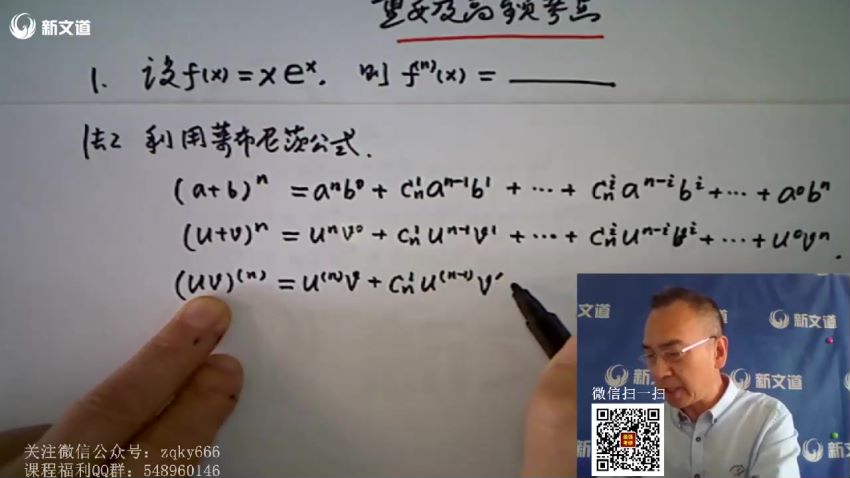 新文道
重要及高频考点
1. 设f(x)=xeˣ. 则 f⁽ⁿ⁾(x)= ______
法2 利用莱布尼茨公式.
(a+b)ⁿ = aⁿb⁰ + Cₙ¹aⁿ⁻¹b¹ + … + Cₙⁱaⁿ⁻ⁱbⁱ + … + a⁰bⁿ
(u+v)ⁿ = uⁿv⁰ + Cₙ¹uⁿ⁻¹v¹ + … + Cₙⁱuⁿ⁻ⁱvⁱ + … + u⁰vⁿ.
(uv)⁽ⁿ⁾ = u⁽ⁿ⁾v + Cₙ¹u⁽ⁿ⁻¹⁾v′
新文道
新文道
新文道
新文道
微信扫一扫
关注微信公众号：zqky666
课程福利QQ群：548960146